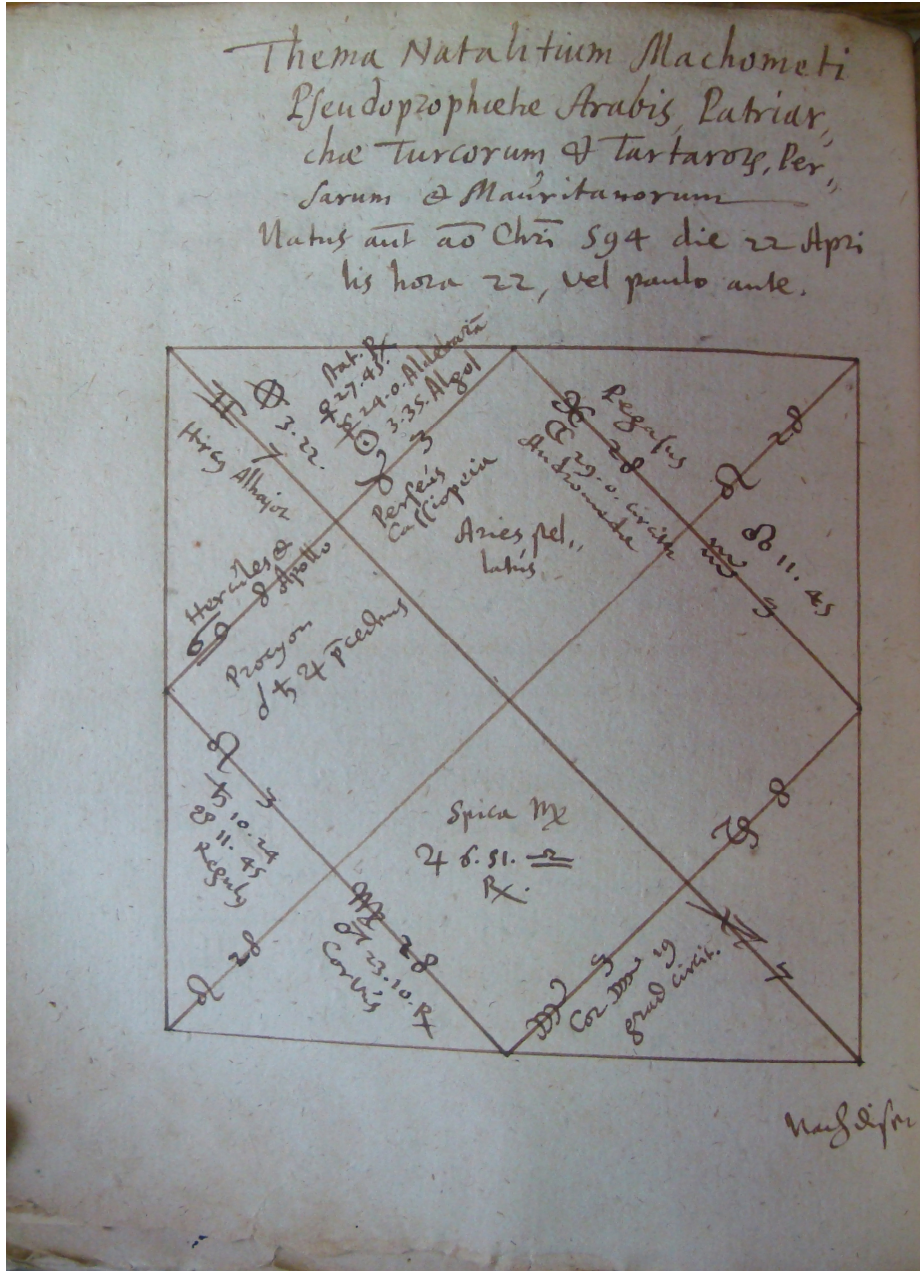 Thema Natalitium Machometi
Pseudoprophetae Arabis, Patriar„
chae Turcorum & Tartaroꝝ, Per„
sarum & Mauritanorum
Natus aūt āo Chrī 594 die 22 Apri
lis hora 22, vel paulo ante.
♊ 7
⊗ 3. 22.
Hircq Alhajoz
☿ 27. 45.
24. 0. Aldebarā
☉ 3. 35. Algol
♉ 3
Perseus
Cassiopeia
Aries pel„
latus
♓ 28
☾ 29. 0. circit
Andromeda
Pegasus
28
♒ 3
☊ 11. 45
Hercules &
Apollo
♋ 8
Procyon
♂ ♄ ♃ p̄cedens
♌ 3
♄ 10. 24
☋ 11. 45
Regulus
28
♍ 28
♂ 23. 10. ℞
Corvus
Spica ♍
♃ 6. 51. ♎
℞.
♏ 3
Cor ♏ 29
grad circit.
♐ 7
♑ 8
Nach diser